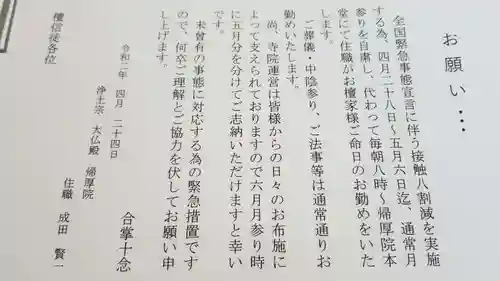 お願い…
全国緊急事態宣言に伴う接触八割減を実施
する為、四月二十八日〜五月六日迄、通常月
参りを自粛し、代わって毎朝八時〜帰厚院本
堂にて住職がお檀家様ご命日のお勤めをいた
します。
ご葬儀・中陰参り、ご法事等は通常通りお
勤めいたします。
尚、寺院運営は皆様からの日々のお布施に
よって支えられておりますので六月月参り時
に五月分を分けてご志納いただけますと幸い
です。
未曾有の事態に対応する為の緊急措置です
ので、何卒ご理解とご協力を伏してお願い申
し上げます。
合掌十念
令和二年 四月 二十四日
浄土宗 大仏殿 帰厚院
住職 成田 賢一
檀信徒各位